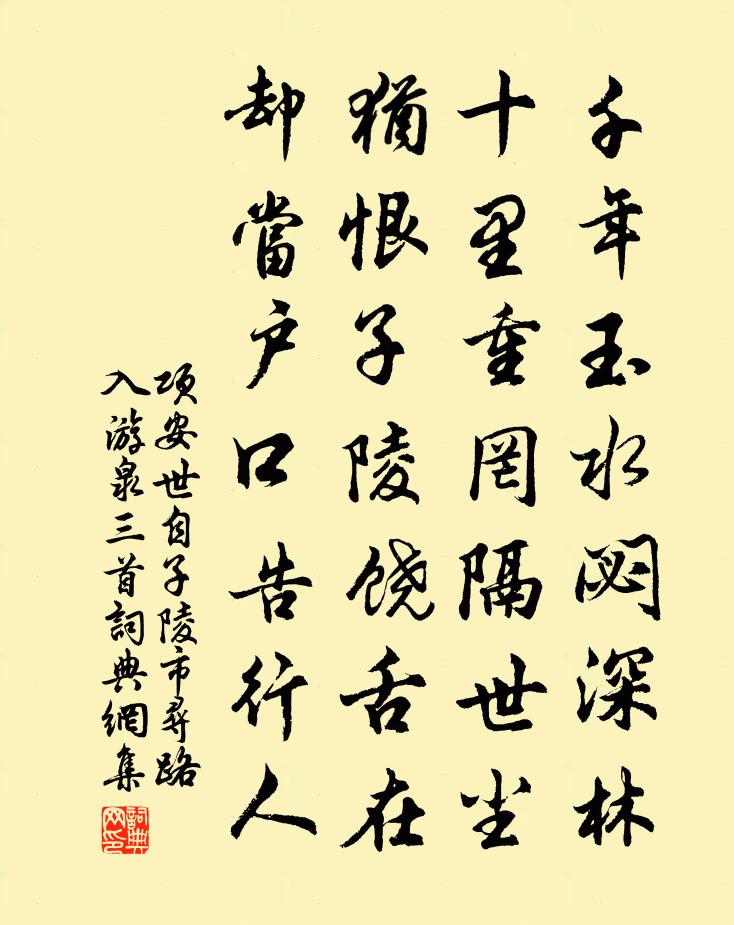 千年玉水閟深林
十里重罔隔世尘
猶恨子陵饶舌在
却當户口告行人
项安世自子陵市尋路
入游泉三首詞典網集
詞典网印